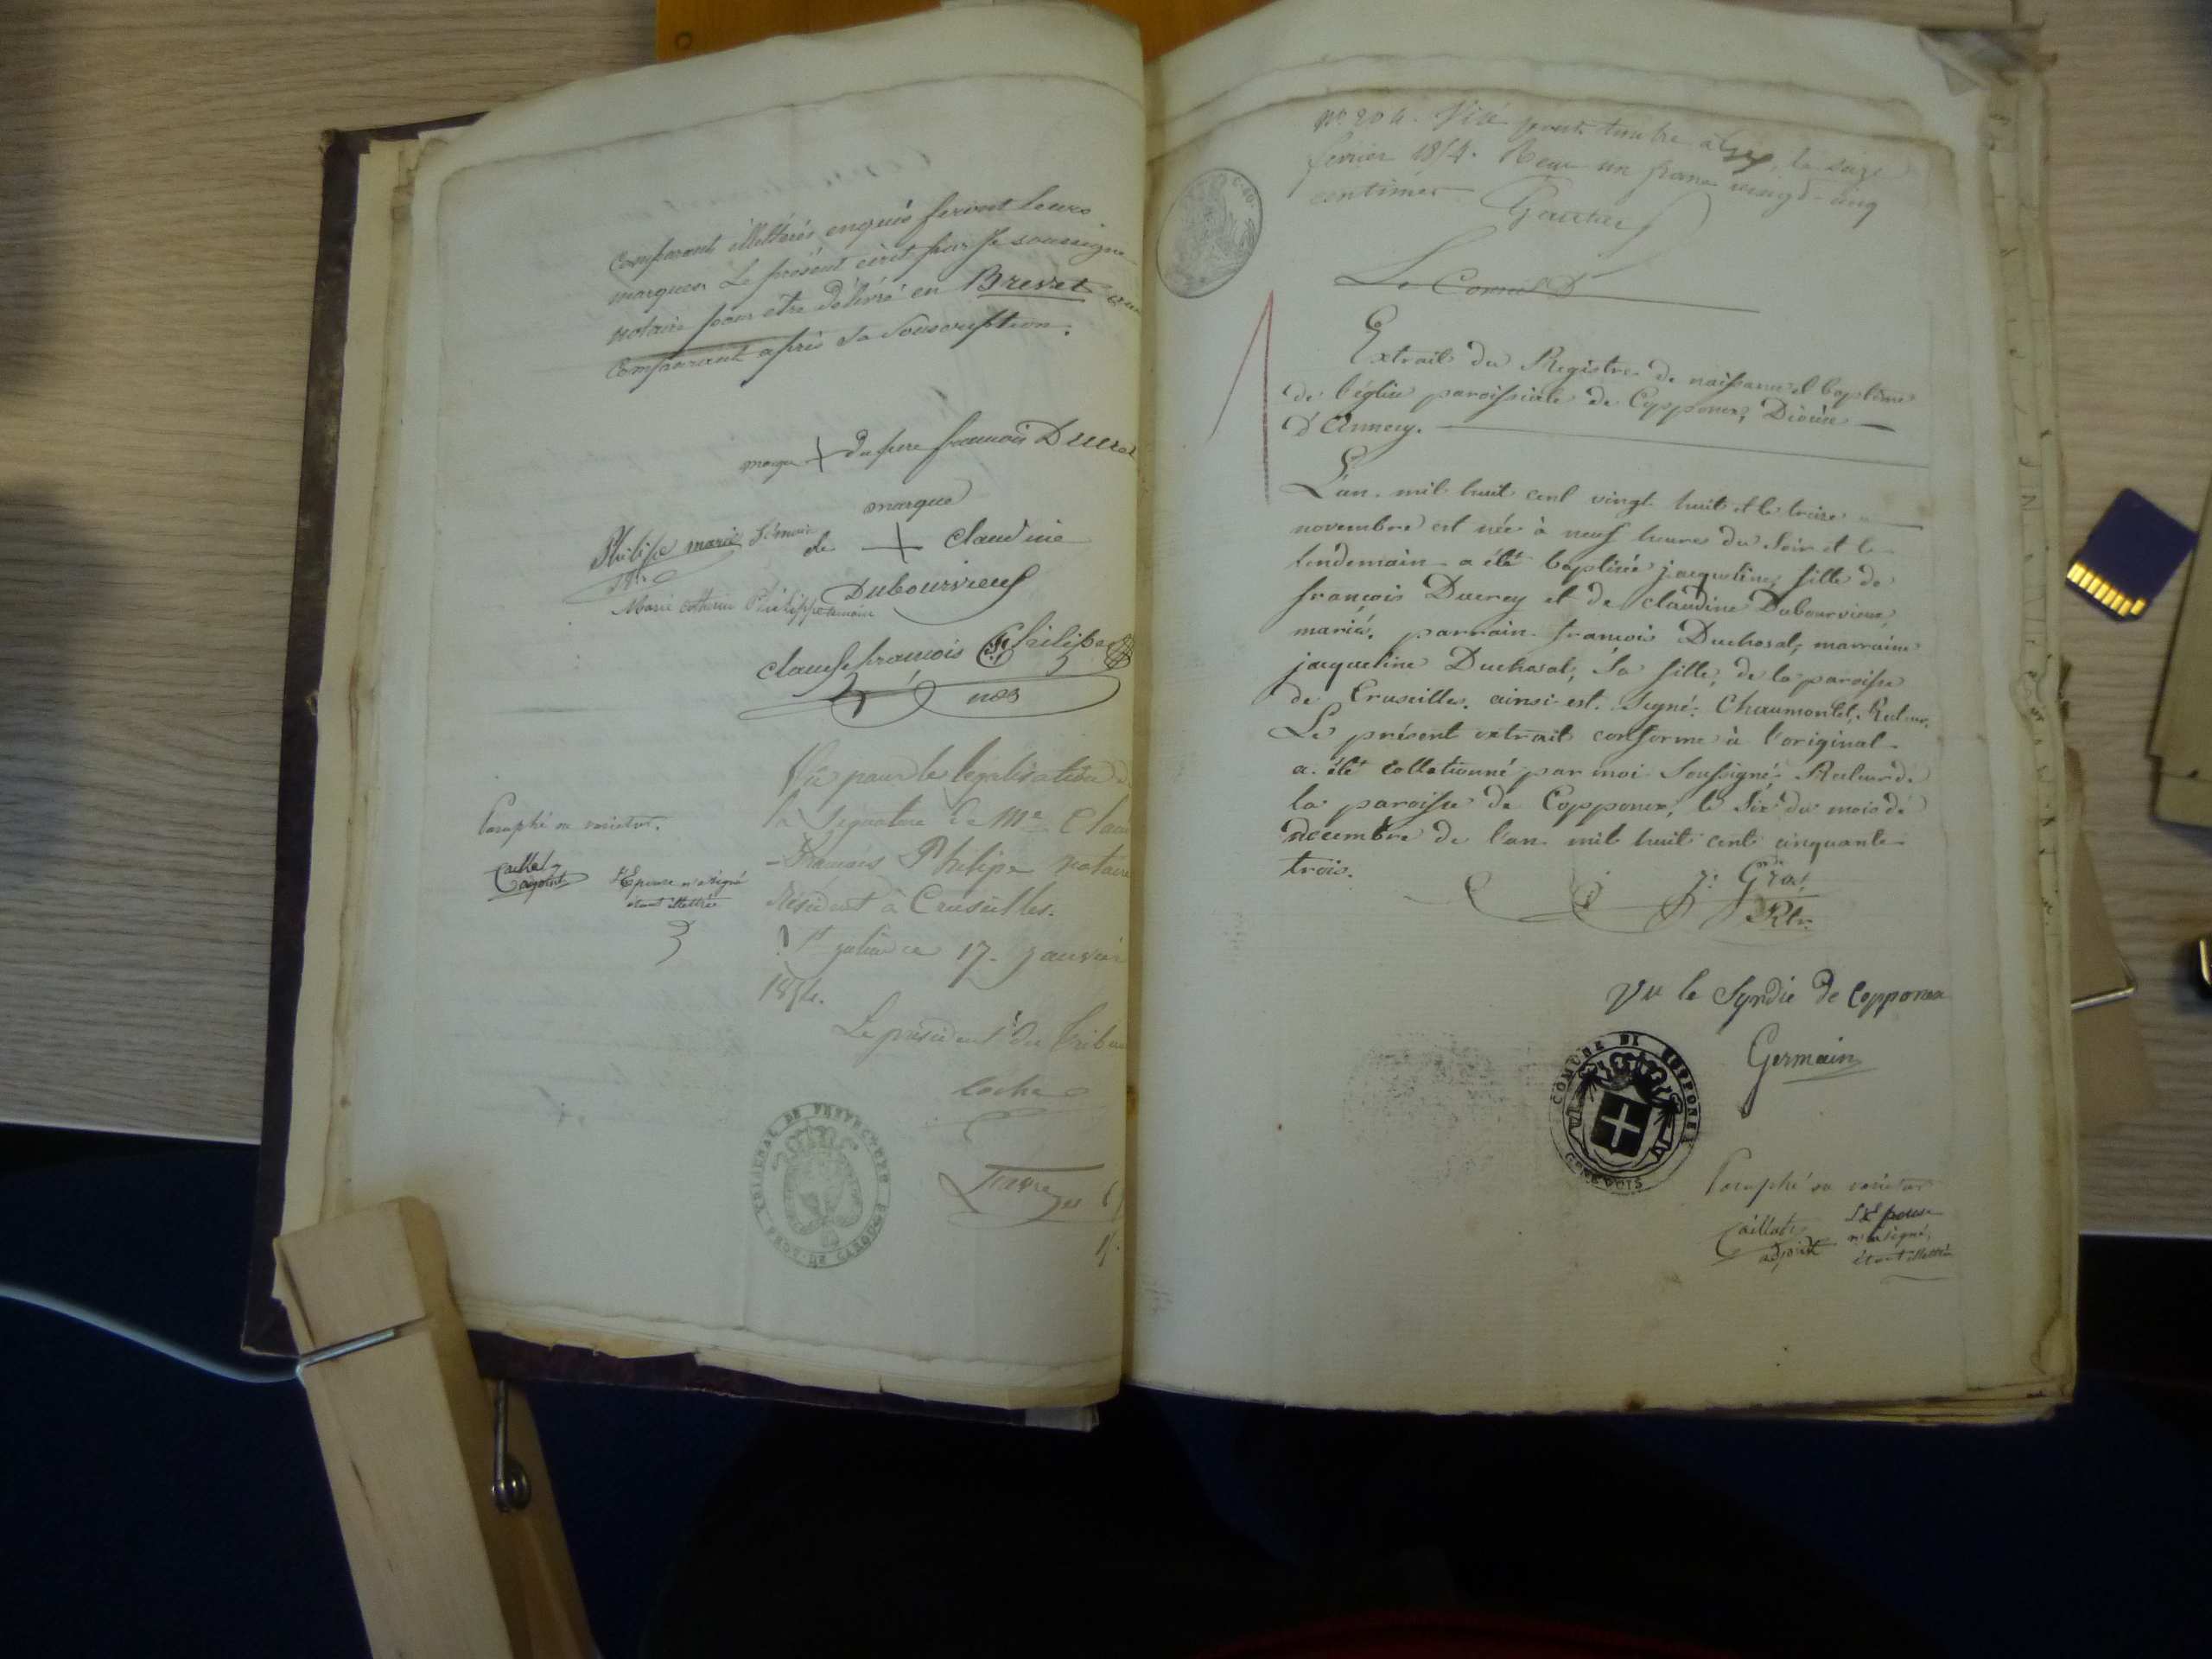 comparants illettrés enquis feront leurs
marques. Le présent écrit par Je soussigné
notaire pour être délivré en Brevet aux
comparants après sa souscription.
marque + du père francois Ducret
marque
Philippe marie témoin
de + claudine
Marie Philippe témoin
Dubourvieux
claude francois Philippe
nos
Vû pour la légalisation de
la signature de Me Clau
Paraphé ne varietur.
-François Philippe notaire
Caillat
adjoint
L'Epouse n'a signé
étant illettrée
résident à Cruseilles.
St julien ce 17. janvier
1854.
Le président du Tribun
TRIBUNAL DE PREFECTURE
PROV. DE CAROUGE
No 204. Visé pour timbre à Gex, le seize
février 1854. Reçu un franc vingt-cinq
centimes.
C. 40.
Le Conseil D
Extrait du Registre de naissance et baptême
de l'église paroissiale de Copponex, Diocèse
D'Annecy.
L'an mil huit cent vingt huit et le treize
novembre est née à neuf heures du soir et le
lendemain a été baptisée jacqueline, fille de
françois Ducrey et de claudine Dubourvieux,
mariés. parrain françois Duchosal, marraine
jacqueline Duchosal, sa fille, de la paroisse
de Cruseilles. ainsi est. Signé: Chaumontet, Recteur.
Le présent extrait conforme à l'original
a été collationné par moi Soussigné Recteur de
la paroisse de Copponex, le Six du mois de
décembre de l'an mil huit cent cinquante
trois.
Rtr.
Vu le Syndic de Copponex
Germain
COMUNE DI COPPONEX
GENEVOIS
Paraphé ne varietur
Caillat
adjoint
L'Epouse
n'a signé,
étant illettrée